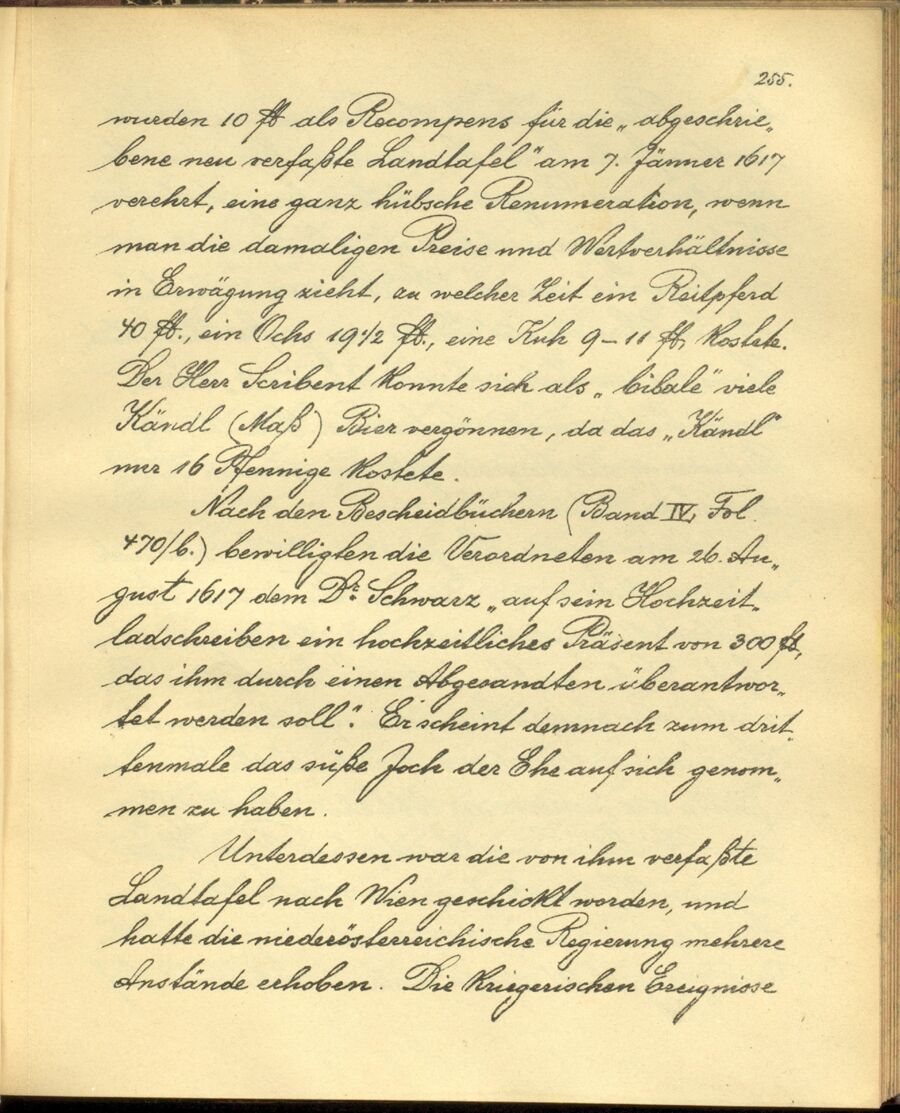 255.
wurden 10 ƒƚ als Recompens für die „abgeschrie„
bene neu verfaßte Landtafel" am 7. Jänner 1617
verehrt, eine ganz hübsche Renumeration, wenn
man die damaligen Preise und Wertverhältnisse
in Erwägung zieht, zu welcher Zeit ein Reitpferd
40 fl., ein Ochs 19 1/2 fl., eine Kuh 9 – 11 fl. kostete.
Der Herr Scribent konnte sich als „bibale" viele
Kändl (Maß) Bier vergönnen, da das „Kändl"
nur 16 Pfennige kostete.
Nach den Bescheidbüchern (Band IV, Fol.
470/b.) bewilligten die Verordneten am 26. Au„
gust 1617 dem Dr. Schwarz „auf sein Hochzeit„
ladschreiben ein hochzeitliches Präsent von 300 fl,
das ihm durch einen Abgesandten überantwor„
tet werden soll". Er scheint demnach zum drit„
tenmale das süße Joch der Ehe auf sich genom„
men zu haben.
Unterdessen war die von ihm verfaßte
Landtafel nach Wien geschickt worden, und
hatte die niederösterreichische Regierung mehrere
Anstände erhoben. Die kriegerischen Ereignisse